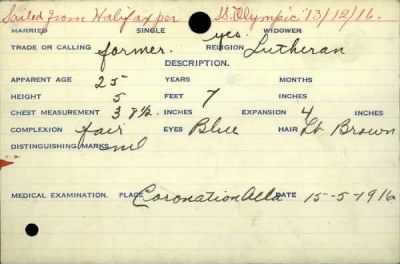 Sailed from Halifax per SS. Olympic 13/12/16.
MARRIED SINGLE yes. WIDOWER
TRADE OR CALLING farmer. RELIGION Lutheran
DESCRIPTION.
APPARENT AGE 25 YEARS MONTHS
HEIGHT 5 FEET 7 INCHES
CHEST MEASUREMENT 38½ INCHES EXPANSION 4 INCHES
COMPLEXION fair EYES Blue HAIR Lt Brown
DISTINGUISHING MARKS nil
MEDICAL EXAMINATION. PLACE Coronation Alta DATE 15-5-1916